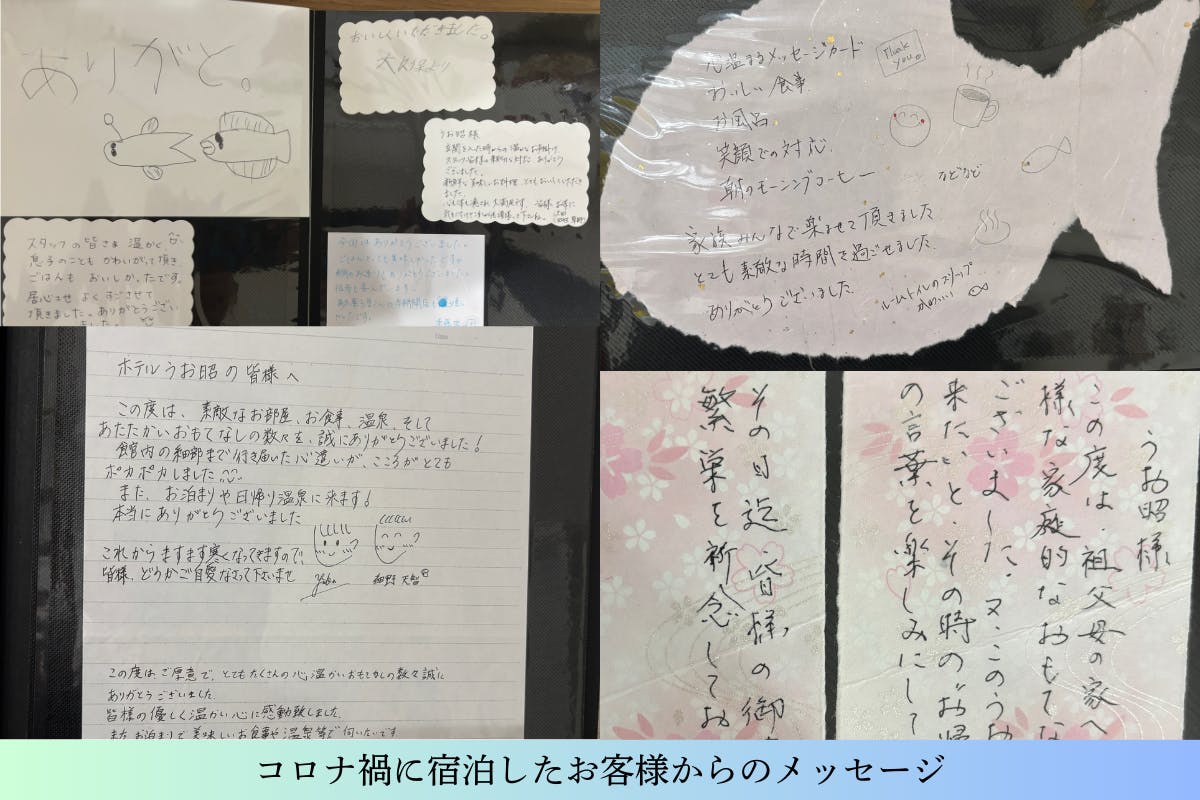 ありがと。
おいしくいただきました。
うお昭様
玄関を入った時からの温かなお出迎え
スタッフ皆様の親切な対応 ありがとう
ございました。
新鮮な美味しいお料理、とてもおいしくいただき
ました。
スタッフの皆さま 温かく、
息子のことも かわいがって頂き
ごはんも おいしかったです。
居心地 よく すごさせて
頂きました。ありがとうござい
ました。
今回は ありがとうございました。
心温まるメッセージカード
Thank you
おいしい食事
お風呂
笑顔での対応
朝のモーニングコーヒー
などなど
家族みんなで楽しませて頂きました
とても素敵な時間を過ごせました。
ありがとうございました。
ルームトイレのスリッパ
かわいい
ホテルうお昭の皆様へ
この度は、素敵なお部屋、お食事、温泉、そして
あたたかいおもてなしの数々を、誠にありがとうございました!
館内の細部まで行き届いた心遣いが、こころがとても
ポカポカしました
また、お泊まりや日帰り温泉に来ます!
本当にありがとうございました
これからますます寒くなってきますので、
皆様、どうかご自愛なさって下さいませ
この度は、ご厚意で、とてもたくさんの心温かいおもてなしの数々誠に
ありがとうございました
皆様の優しく温かい心に感動致しました。
また お泊まりで 美味しいお食事や温泉等で伺いたいです
うお昭様
この度は、祖父母の家へ
様な家庭的なおもてな
ございました。又、このうお
来たいと、その時のお帰
の言葉を楽しみにして
その日迄、皆様の御
繁栄を祈念してお
コロナ禍に宿泊したお客様からのメッセージ